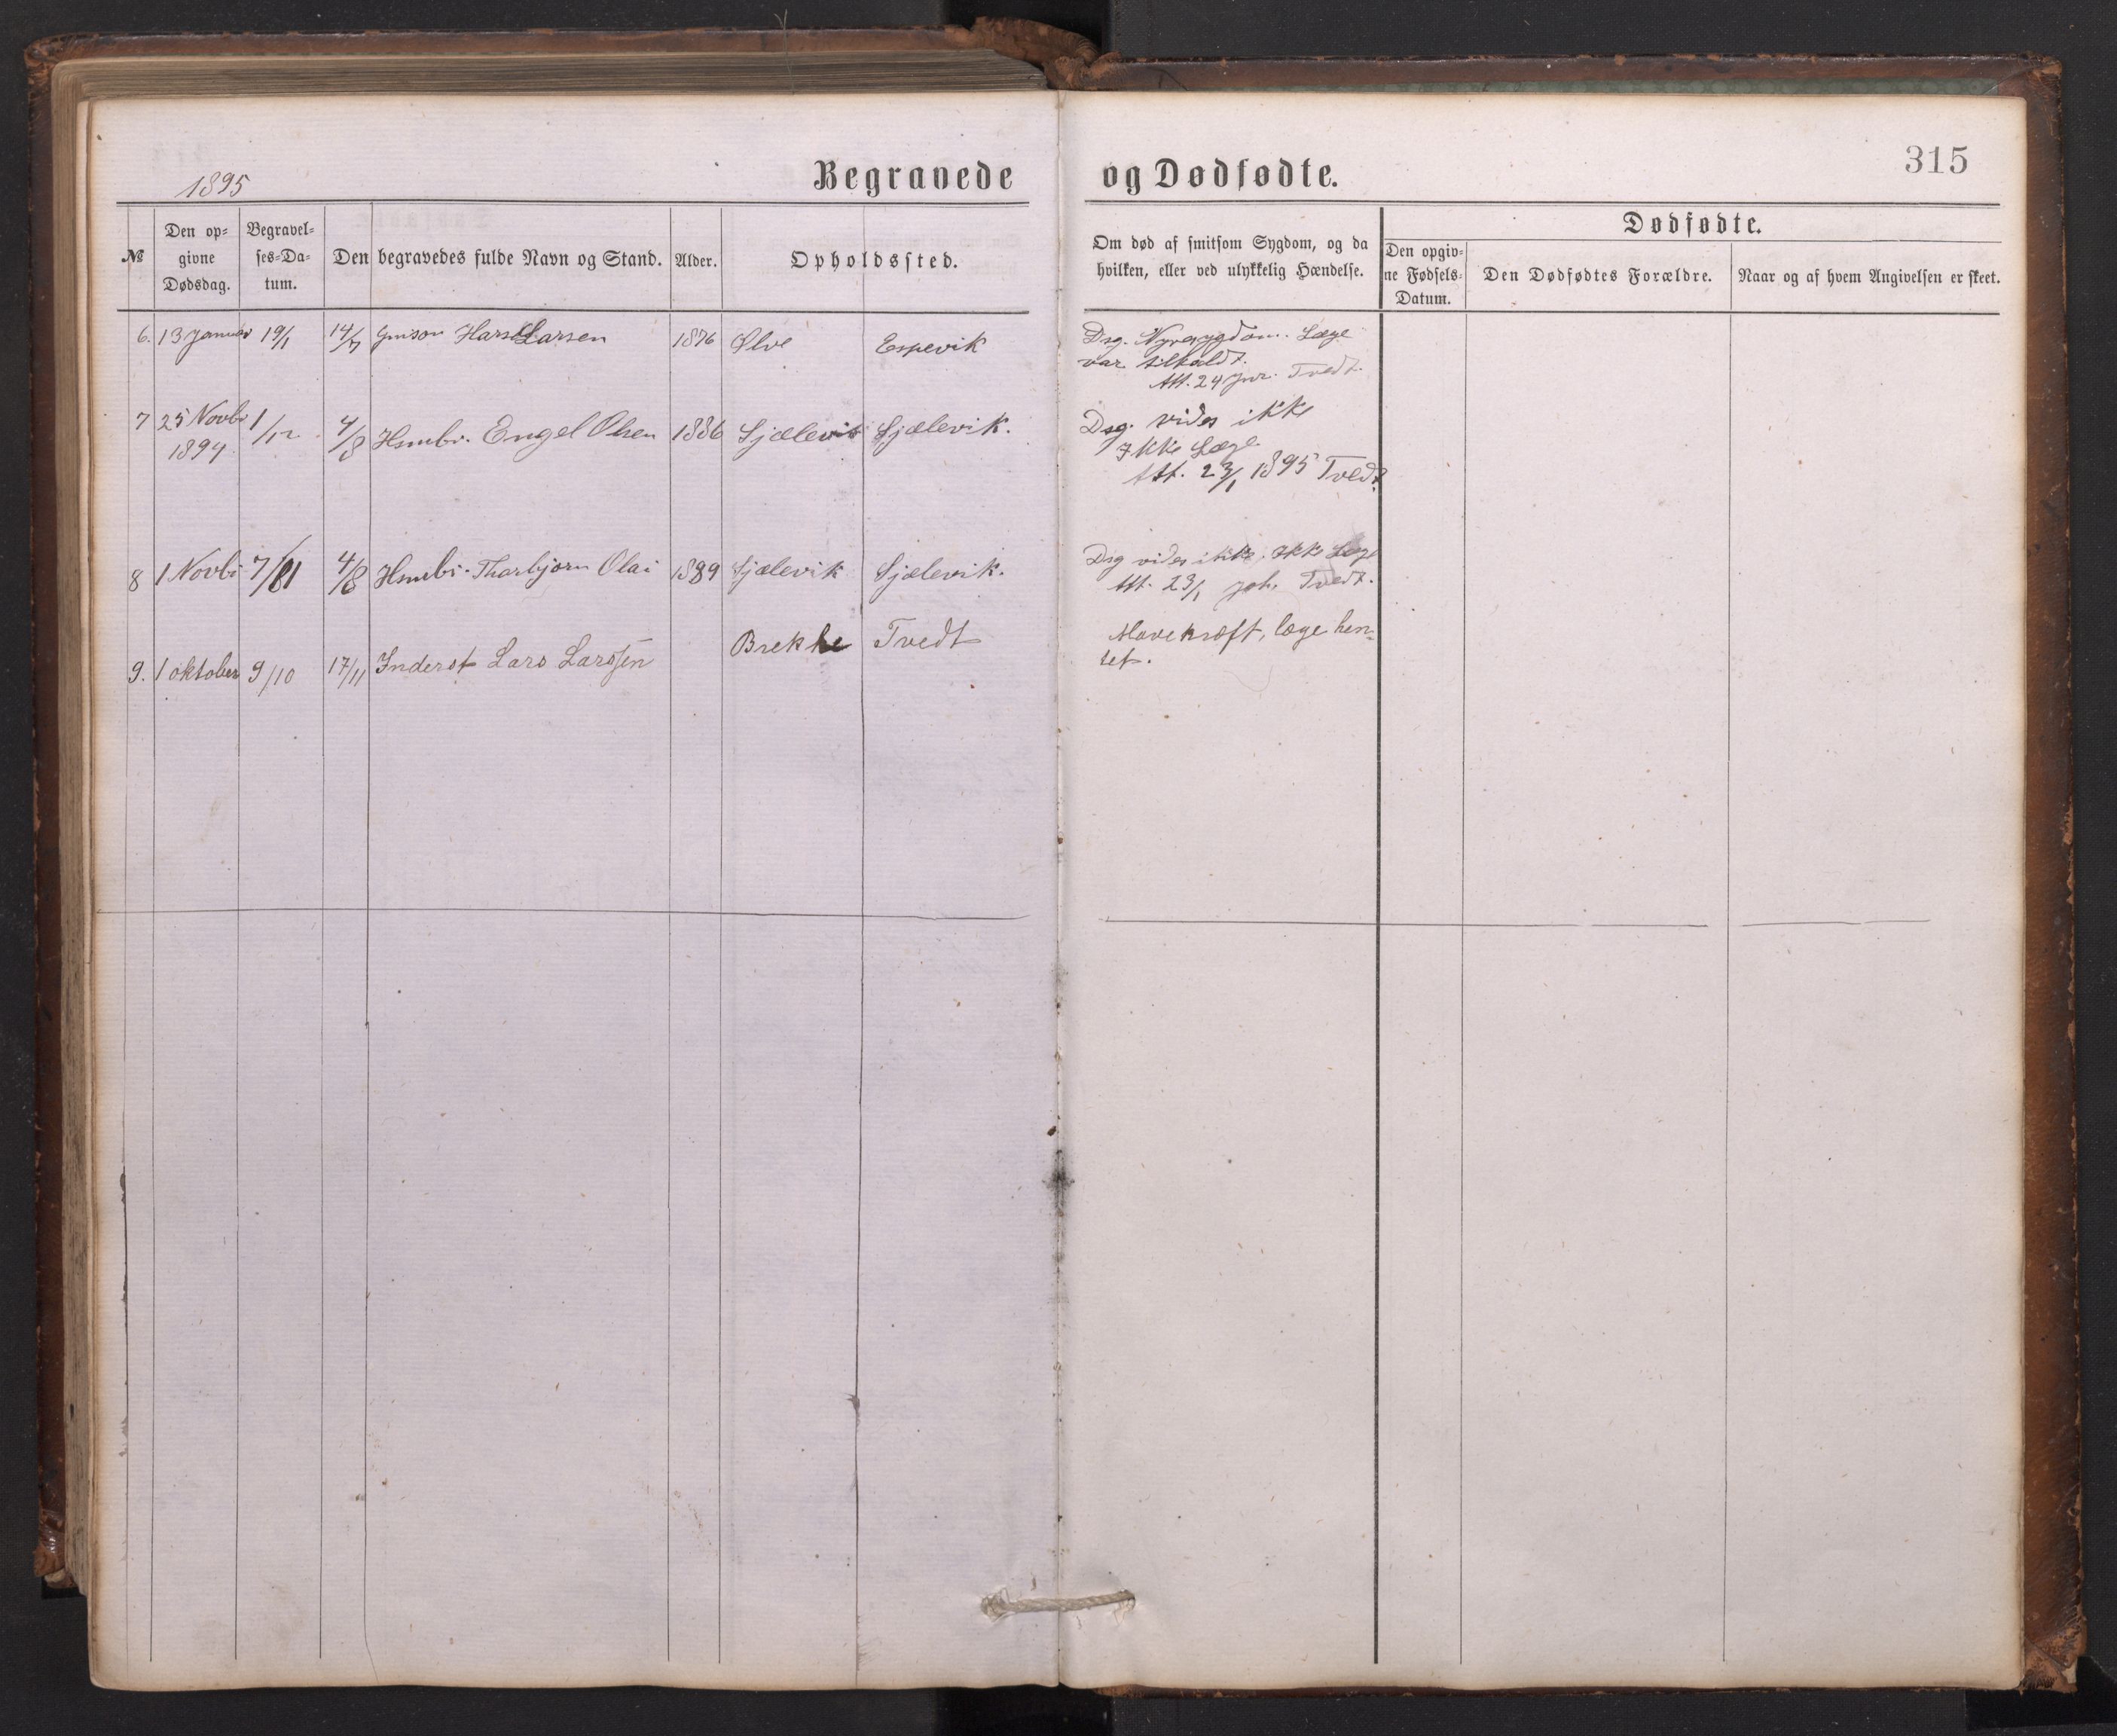 1895
Begravede og Dødfødte.
315
№
Den opgivne Dødsdag.
Begravelses-Datum.
Den begravedes fulde Navn og Stand.
Alder.
Opholdssted.
Om død af smitsom Sygdom, og da
hvilken, eller ved ulykkelig Hændelse.
Dødfødte.
Den opgivne Fødsels-Datum.
Den Dødfødtes Forældre.
Naar og af hvem Angivelsen er skeet.
6. 13 Januar 19/1 14/7 Larsen 1876 Ølve Espevik
Dsg. Nyresygdom. Læge
var tilkaldt.
Att. 24 Jnr. Tvedt.
7 25 Novbr 1/12 4/8 Hmbr. Engel Olsen 1886 Sjælevik Sjælevik.
1894
Dsg. vides ikke
Ikke Læge
Att. 23/1 1895 Tvedt
8 1 Novbr 4/8 Hmbr. Thorbjørn Olai 1889 Sjælevik Sjælevik.
Dsg vides ikke. Ikke Læge
Att. 23/1 Joh. Tvedt.
9. 1 oktober 9/10 17/11 Inderst Lars Larssen Brekke Tvedt
Mavekræft, læge hen-
tet.